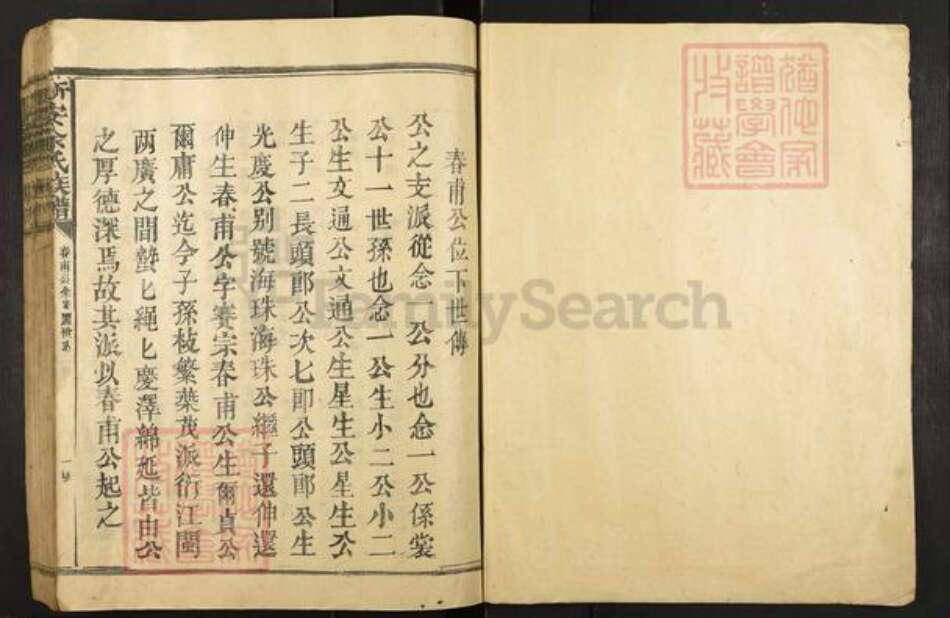 春甫公位下世傳
公之支派從念一公分也念一公係裳
公十一世孫也念一公生小二公小二
公生文通公文通公生星生公星生公
生子二長頭郎公次七郎公頭郎公生
光慶公别號海珠海珠公繼子還仲還
仲生春甫公字賽宗春甫公生爾貞公
爾庸公迄今子孫枝繁葉茂派衍江閩
两廣之間蟄匕繩匕慶澤綿延皆由公
之厚德深焉故其派以春甫公起之
新安余氏族譜
春甫公
一
猶他家
譜學會
收藏
FamilySearch